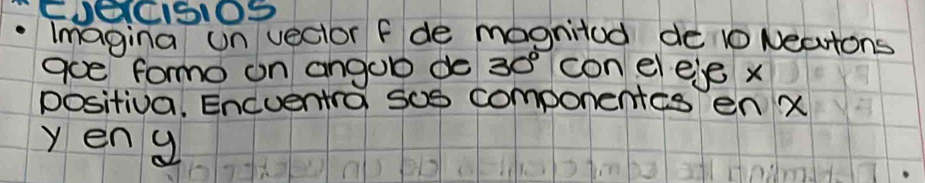 *EJercisiOS
• Imagina un vector f de magnitud de 10 Neutons
que formo un angulo de 30° con el eje x
positiva. Encuentra sus componentes en x
y en y